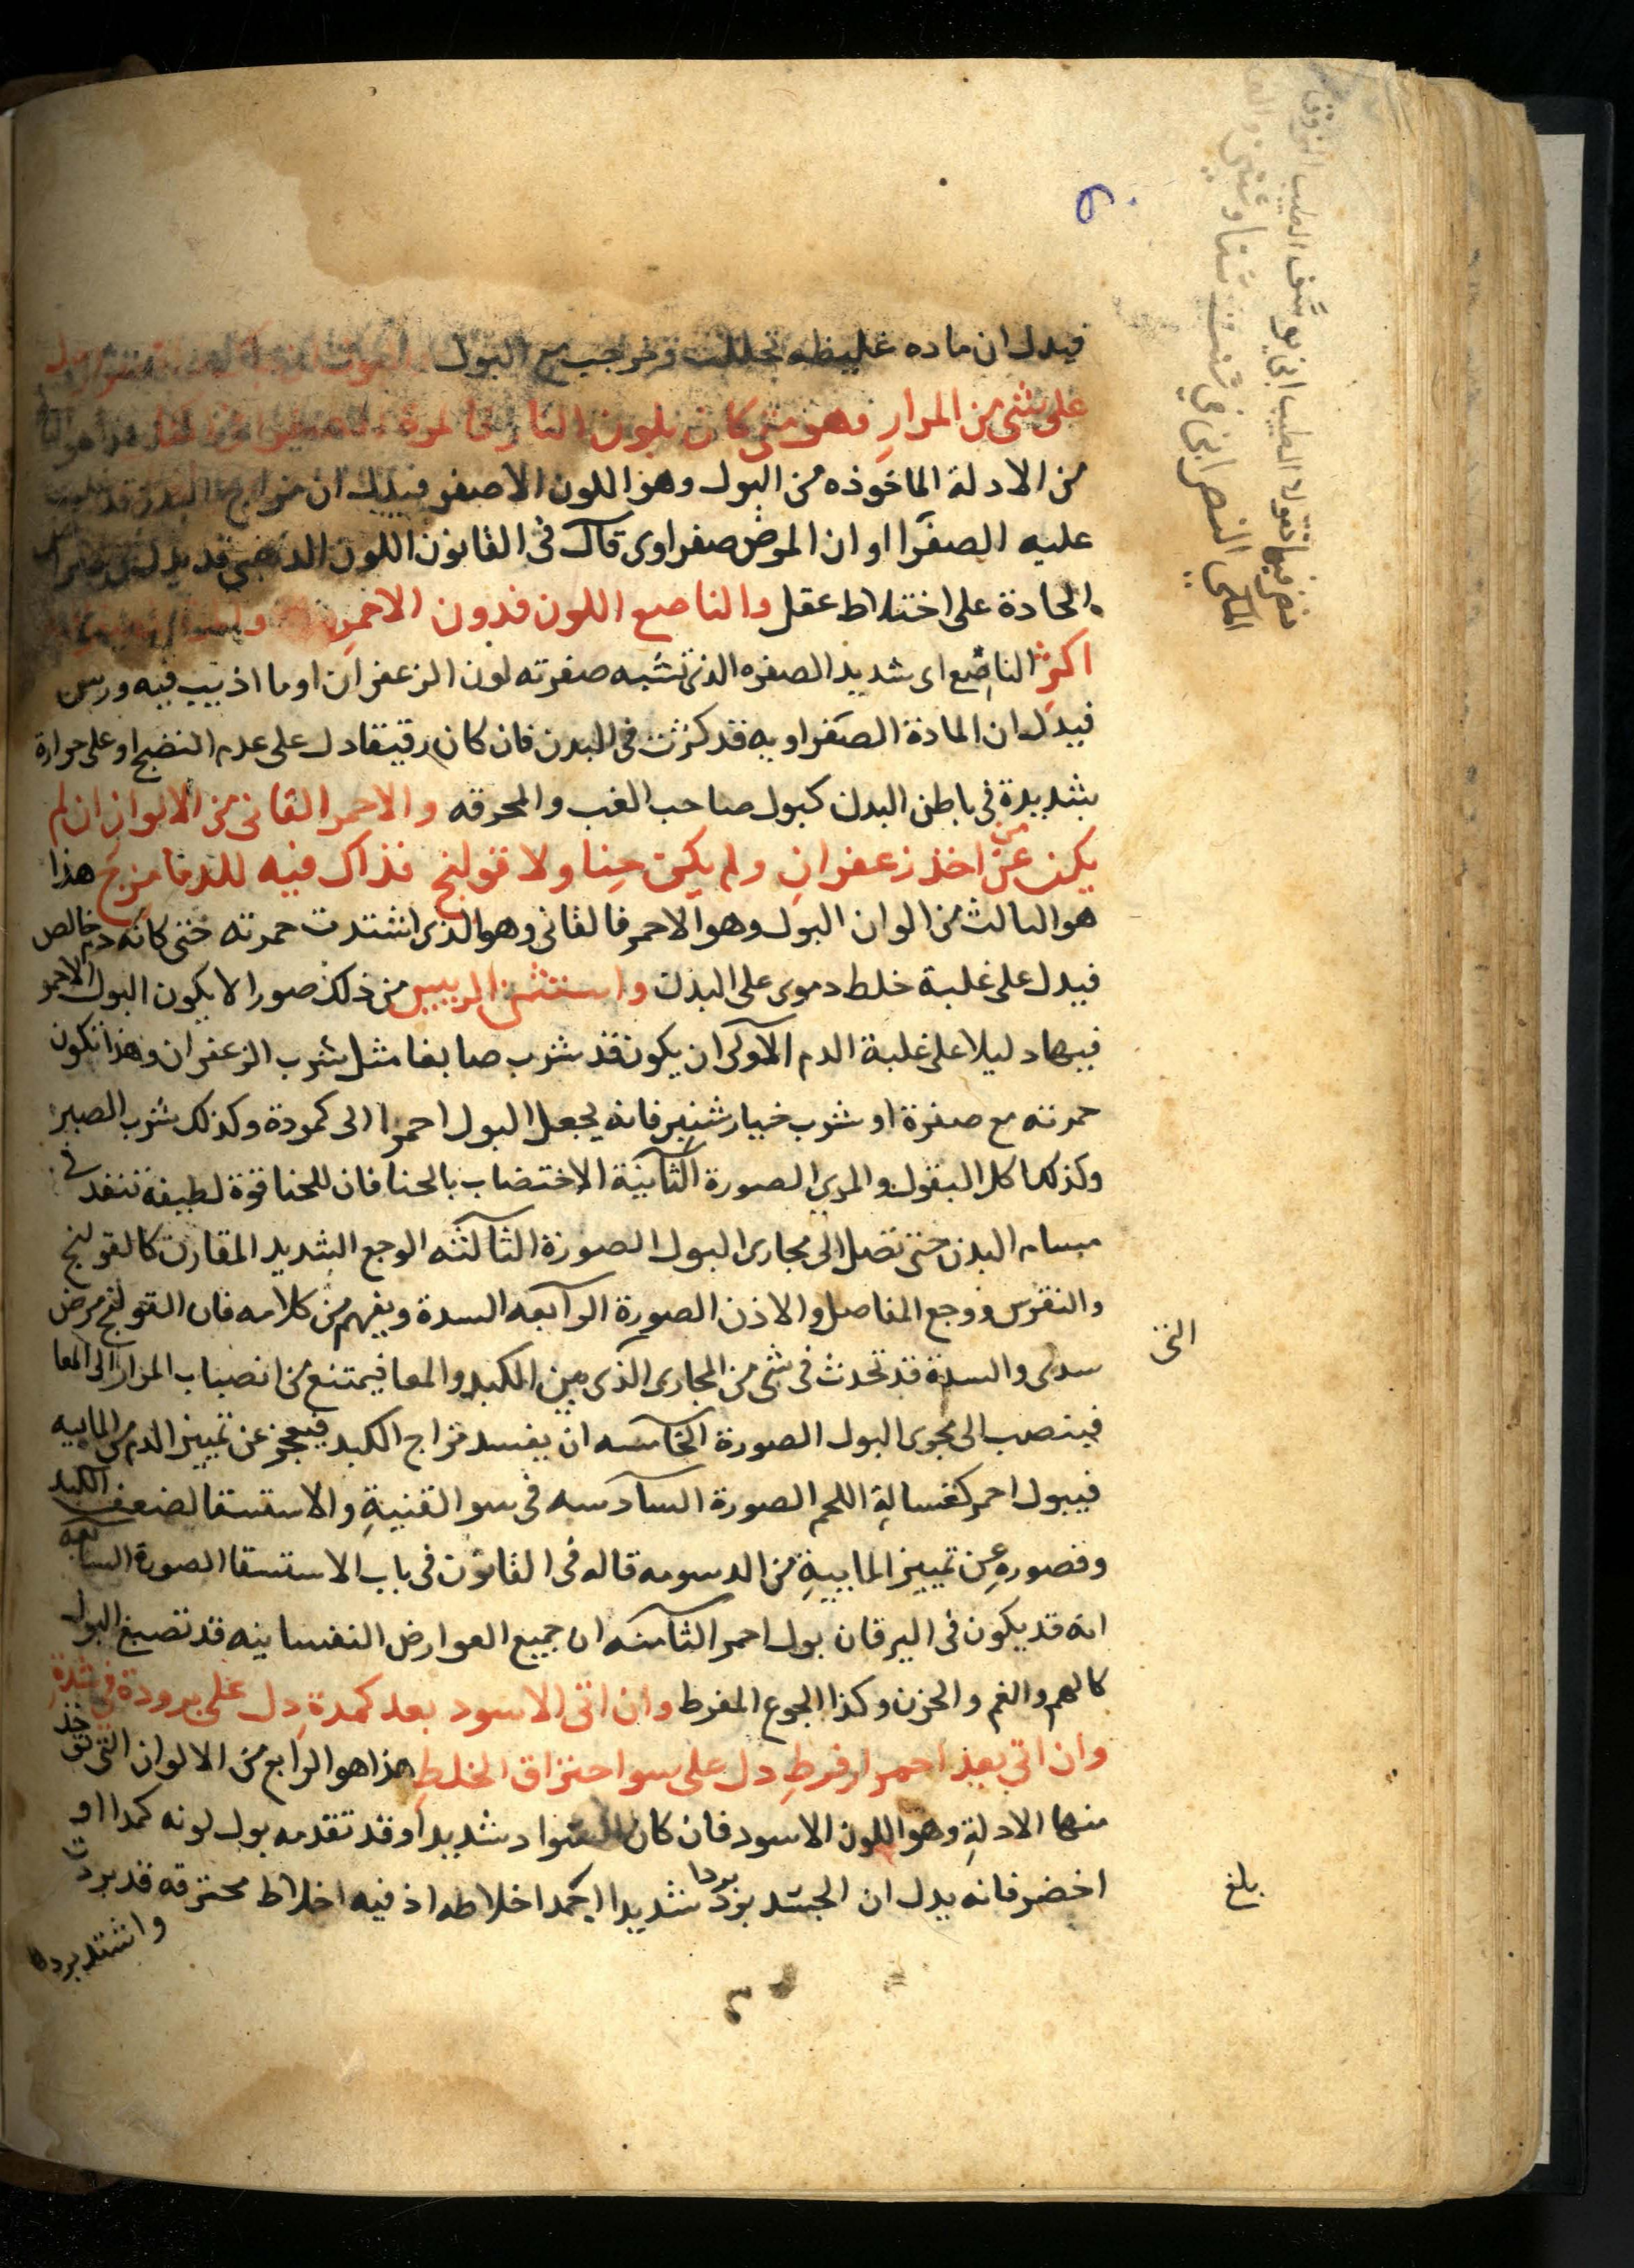 فيدل ان ماده غليظه تحللت وخرجت مع البول
على شي من المرار وهو متى كان بلون النار
من الادلة الماخوذه من البول وهو اللون الاصفر فيدل ان مزاج البدن قد
عليه الصفرا او ان المرض صفراوى قال فى القانون اللون الذهبى قد يدل
الحادة على اختلاط عقل والناصع اللون فدون الاحمر
اكثر الناصع اى شديد الصفره الذى تشبه صفرته لون الزعفران او ما اذيب فيه ورس
فيدل ان المادة الصفراويه قد كثرت فى البدن فان كان رقيقا دل على عدم النضج او على حرارة
شديدة فى باطن البدن كبول صاحب الغب والمحرقه والاحمر القانى من الالوان ان لم
يكن عن اخذ زعفران ولم يكن حنا ولا قولنج فذاك فيه للدما مزج هذا
هو الثالث من الوان البول وهو الاحمر فالقانى وهو الذى اشتدت حمرته حتى كانه دم خالص
فيدل على غلبة خلط دموى على البدن واستثنى الرييس من ذلك صورا لا يكون البول الاحمر
فيها دليلا على غلبة الدم الاولى ان يكون قد شرب صابغا مثل شرب الزعفران وهذا تكون
حمرته مع صفرة او شرب خيار شنبر فانه يجعل البول احمرا الى كمودة وكذلك شرب الصبر
وكذلك اكل البقول والمرى الصورة الثانية الاختضاب بالحنا فان للحنا قوة لطيفه تنفد فى
مسام البدن حتى تصل الى مجارى البول الصورة الثالثه الوجع الشديد المقارن كالقولنج
والنقرس ووجع المفاصل والاذن الصورة الرابعه السدة ويفهم من كلامه فان القولنج مرض
سدى والسدة قد تحدث فى شى من المجارى الذى بين الكبد والمعا فيمتنع من انصباب المرار الى المعا
فينصب الى مجرى البول الصورة الخامسه ان يفسد مزاج الكبد فيعجز عن تمييز الدم من المابيه
فيبول احمر كغسالة اللحم الصورة السادسه فى سو القنية والاستسقا لضعف الكبد
وقصوره عن تمييز المابية من الدسومه قاله فى القانون فى باب الاستسقا الصورة السابعه
انه قد يكون فى اليرقان بول احمر الثامنه ان جميع العوارض النفسانيه قد تصبغ البول
كالهم والغم والحزن وكذا الجوع المفرط وان اتى الاسود بعد كمدة دل على برودة فى شدة
وان اتى بعد احمرار فرط دل على سو احتراق الخلط هذا هو الرابع من الالوان التى توخذ
منها الادلة وهو اللون الاسود فان كان السواد شديدا وقد تقدمه بول لونه كمدا او
اخضر فانه يدل ان الجسد برد بردا شديدا اجمد اخلاطه اذ فيه اخلاط محترقه قد بردت
واشتد بردها
بلغ